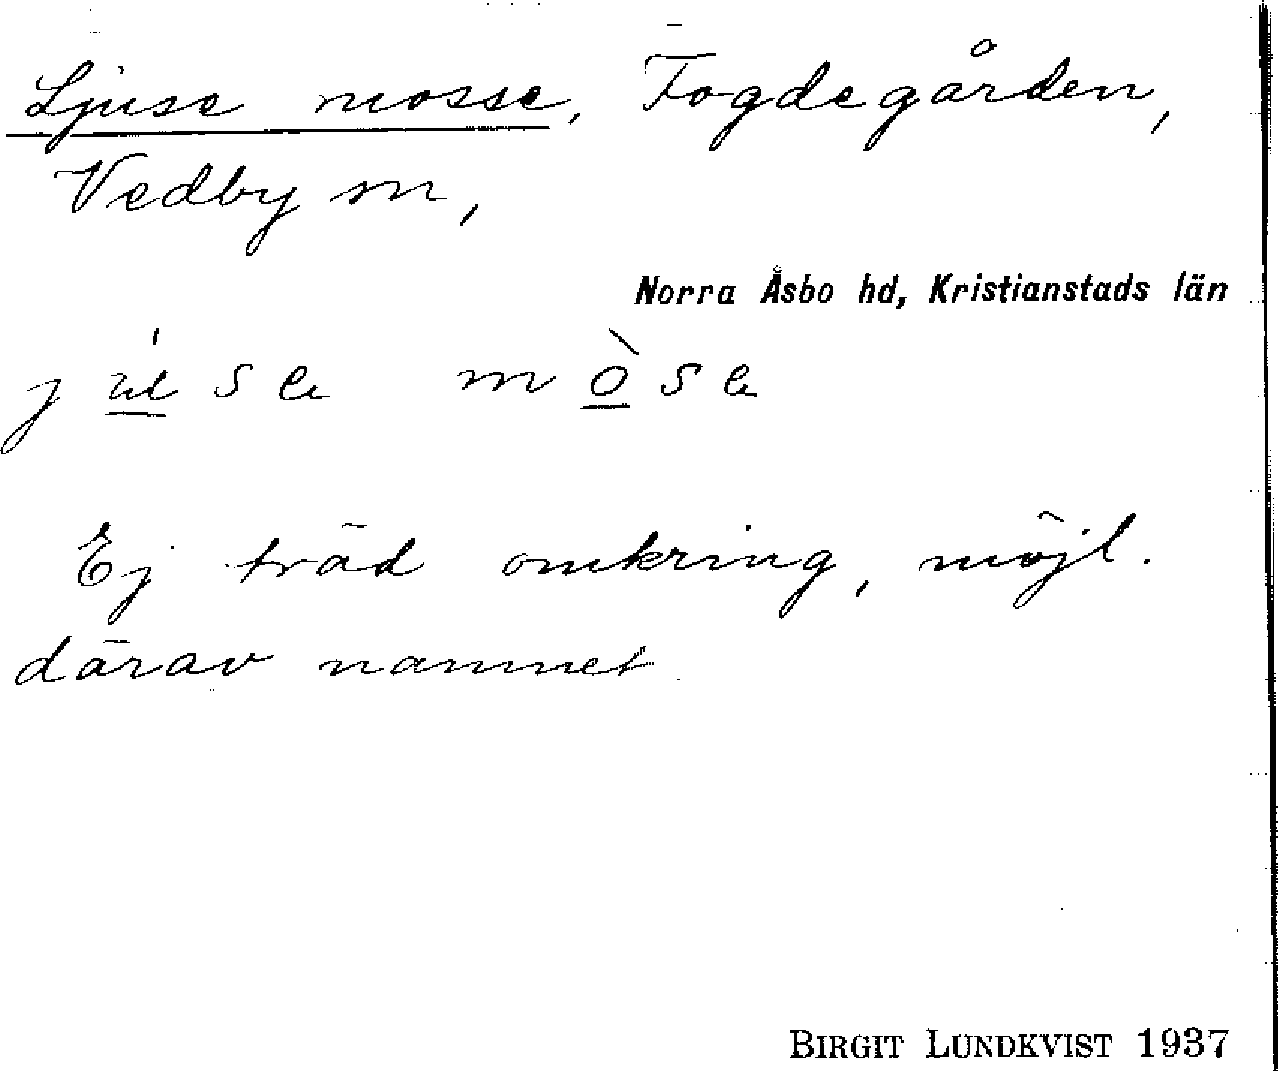 Ljuse mosse, Fogdegården,
Vedby sn,
Norra Åsbo hd, Kristianstads län
Ej träd omkring, möjl.
därav namnet
BIRGIT LUNDKVIST 1937